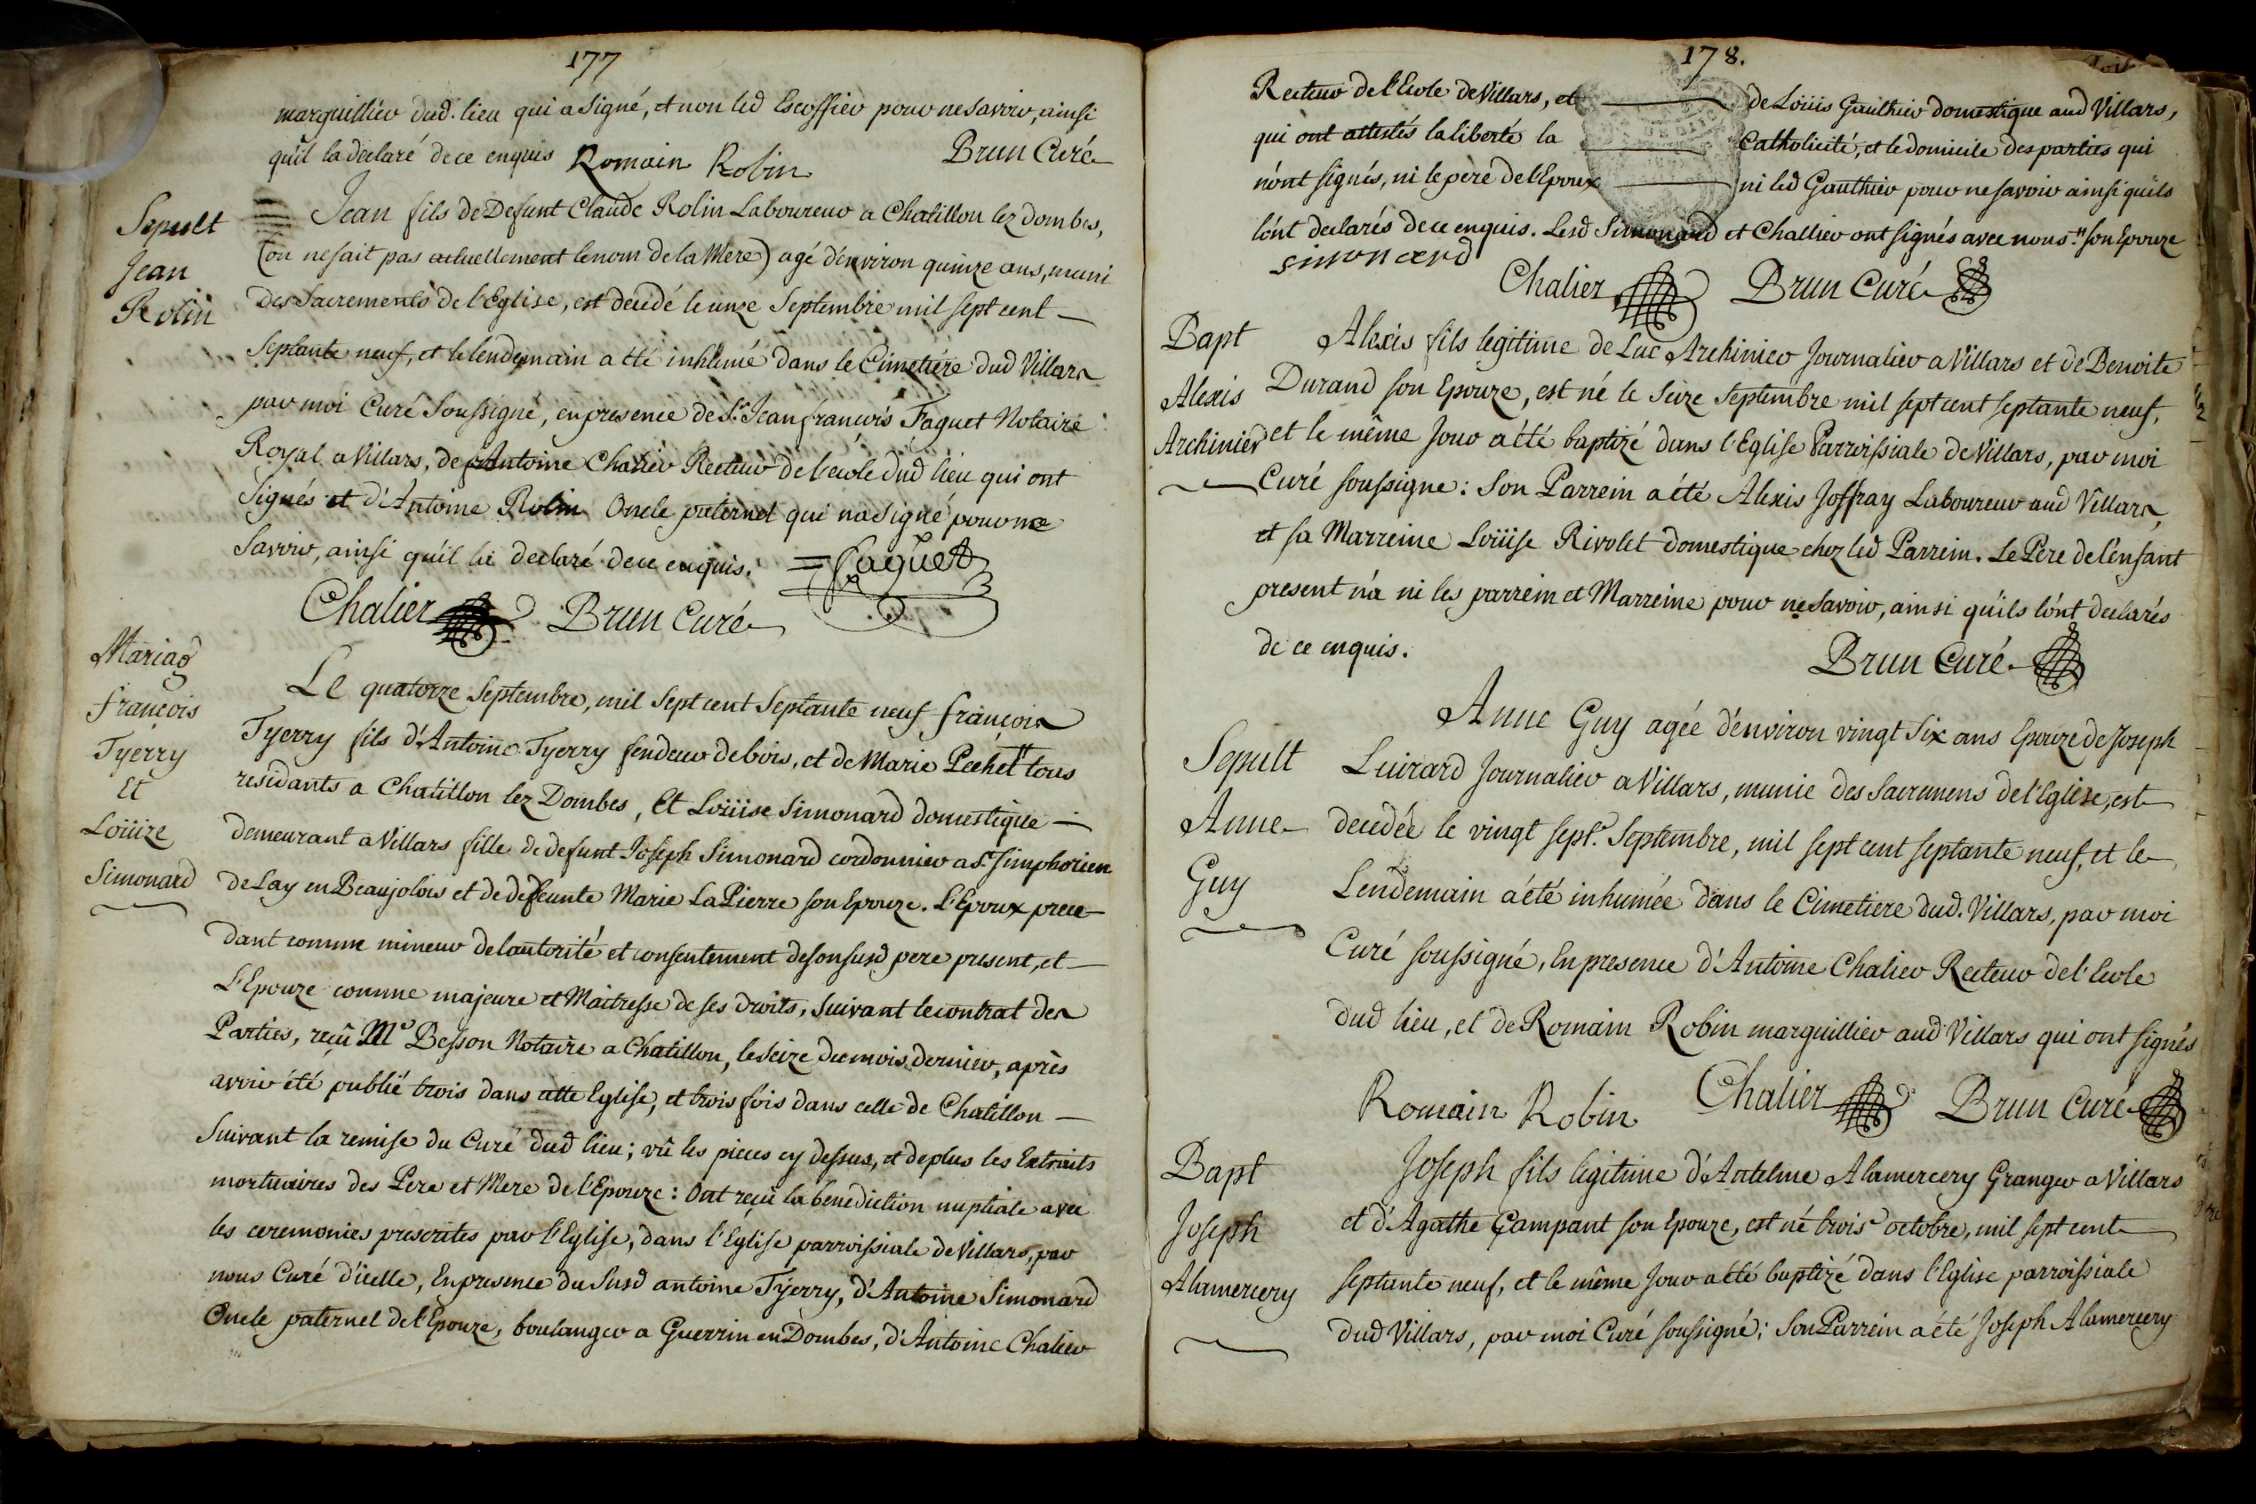 177
marguillier dud. lieu qui a signé, et non led Escoffier pour ne savoir, ainsi
qu'il la declaré de ce enquis Romain Robin Brun Curé
Sepult
Jean
Rolin
Jean fils de Defunt Claude Rolin Laboureur a Chatillon lez dombes,
(on ne sait pas actuellement le nom de la Mere) agé d'environ quinze ans, muni
des Sacrements de l'Eglise, est decedé le onze Septembre mil sept cent
septante neuf, et le lendemain a été inhumé dans le Cimetiere dud Villars
par moi Curé Soussigné, en presence de Sr. Jean françois Faguet Notaire
Royal a Villars, de Antoine Chalier Recteur de l'ecole dud lieu qui ont
Signés et d'Antoine Rolin Oncle paternel qui n'a signé pour ne
Savoir, ainsi qu'il la declaré de ce enquis. Faguet
Chalier Brun Curé
Mariag
françois
Tyerry
Et
Loüize
Simonard
Le quatorze Septembre, mil sept cent Septante neuf françois
Tyerry fils d'Antoine Tyerry fendeur de bois, et de Marie Pechet" tous
residants a Chatillon lez Dombes, Et Loüise Simonard domestique
demeurant a Villars fille de defunt Joseph Simonard cordonnier a St. Simphorien
de Lay en Beaujolois et de defeunte Marie La Pierre son Epouze. L'Epoux proce-
dant comme mineur de l'autorité et consentement de son susd pere present, et
L'Epouze comme majeure et Maitresse de ses droits, suivant le contrat des
Parties, reçû Me Besson Notaire a Chatillon, le seize du mois dernier, après
avoir été publié trois dans cette Eglise, et trois fois dans celle de Chatillon
Suivant la remise du Curé dud lieu; vû les pieces cy dessus, et de plus les Extraits
mortuaires des Pere et Mere de l'Epouze: Ont reçû la benediction nuptiale avec
les ceremonies prescrites par l'Eglise, dans l'Eglise parroissiale de Villars, par
nous Curé d'icelle, En presence du Susd antoine Tyerry, d'Antoine Simonard
Oncle paternel de l'Epouze, boulanger a Guerrin en Dombes, d'Antoine Chalier
178.
Recteur de l'Ecole de Villars, et de Loüis Gaulthier domestique aud Villars,
qui ont attestés la liberté la Catholicité, et le domicile des parties qui
n'ont signés, ni le pere de l'Epoux ni led Gaulthier pour ne savoir ainsi qu'ils
l'ont declarés de ce enquis. Lesd Simonard et Challier ont signés avec nous." son Epouze
simonard
Chalier Brun Curé
Bapt
Alexis
Archinier
Alexis fils legitime de Luc Archinier Journalier a Villars et de Benoite
Durand son Epouze, est né le Seize Septembre mil sept cent septante neuf,
et le même Jour a été baptizé dans l'Eglise Parroissiale de Villars, par moi
Curé soussigne: Son Parrein a été Alexis Joffray Laboureur aud Villars,
et sa Marreine Loüise Rivolet domestique chez led Parrein. Le Pere de l'enfant
present n'a ni les parrein et Marreine pour ne savoir, ainsi qu'ils l'ont declarés
de ce enquis.
Brun Curé
Sepult
Anne
Guy
Anne Guy agée d'environ vingt six ans Epouze de Joseph
Luirard Journalier a Villars, munie des Sacremens de l'Eglise, est
decedée le vingt sept. Septembre, mil sept cent septante neuf, et le
Lendemain a été inhumée dans le Cimetiere dud. Villars, par moi
Curé soussigné, En presence d'Antoine Chalier Recteur de l'Ecole
dud lieu, et de Romain Robin marguillier aud Villars qui ont signés
Romain Robin Chalier Brun Curé
Bapt
Joseph
Alamercery
Joseph fils legitime d'Antelme Alamercery Granger a Villars
et d'Agathe Campant son Epouze, est né trois octobre, mil sept cent
septante neuf, et le même Jour a été baptizé dans l'Eglise parroissiale
dud Villars, par moi Curé soussigné; Son Parrein a été Joseph Alamercery